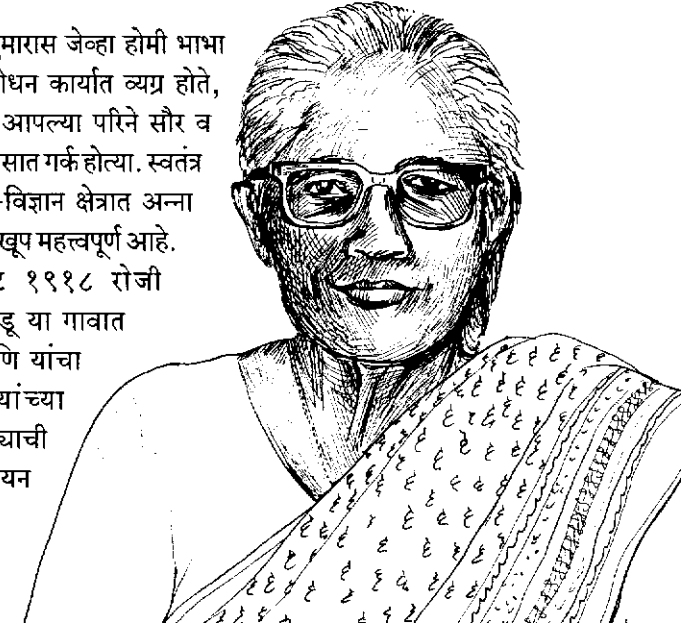 मारास जेव्हा होमी भाभा
ोधन कार्यात व्यग्र होते,
आपल्या परिने सौर व
सात गर्क होत्या. स्वतंत्र
-विज्ञान क्षेत्रात अन्ना
खूप महत्त्वपूर्ण आहे.
१९१८ रोजी
डू या गावात
णि यांचा
यांच्या
याची
यन